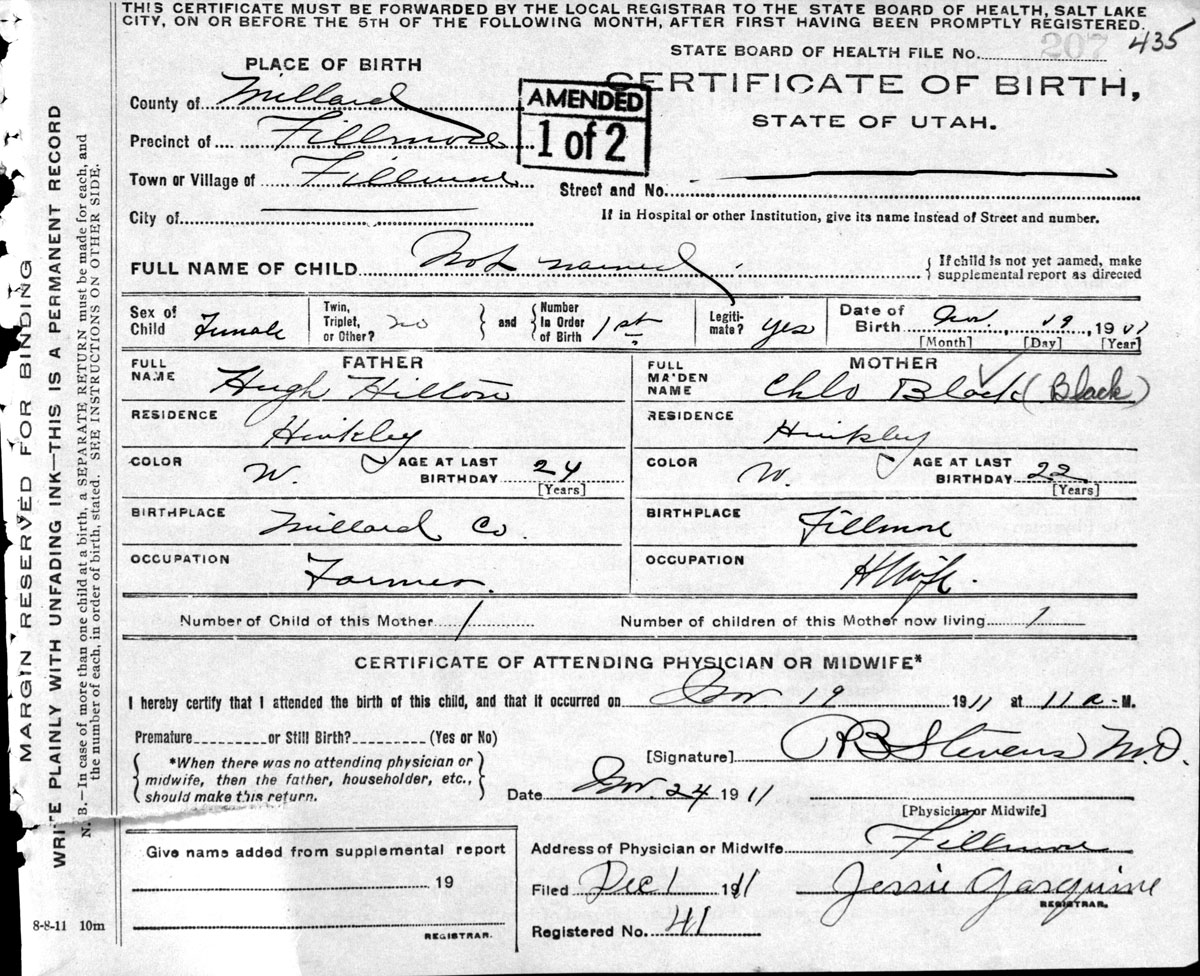 THIS CERTIFICATE MUST BE FORWARDED BY THE LOCAL REGISTRAR TO THE STATE BOARD OF HEALTH, SALT LAKE
CITY, ON OR BEFORE THE 5TH OF THE FOLLOWING MONTH, AFTER FIRST HAVING BEEN PROMPTLY REGISTERED.
STATE BOARD OF HEALTH FILE No. 207 435
PLACE OF BIRTH
CERTIFICATE OF BIRTH,
STATE OF UTAH.
AMENDED
1 of 2
County of Millard
Precinct of Fillmore
Town or Village of Fillmore
Street and No.
City of
If in Hospital or other Institution, give its name instead of Street and number.
FULL NAME OF CHILD Not named
If child is not yet named, make
supplemental report as directed
Sex of Child Female
Twin, Triplet, or Other? no
and
Number In Order of Birth 1st ?
Legiti-mate? yes
Date of Birth Nov. 19, 1911
[Month] [Day] [Year]
FATHER
FULL NAME Hugh Hilton
RESIDENCE
Hinkley
COLOR W. AGE AT LAST BIRTHDAY 24
[Years]
BIRTHPLACE
Millard Co.
OCCUPATION
Farmer
MOTHER
FULL MAIDEN NAME Chlo Black (Black)
RESIDENCE
Hinkley
COLOR W. AGE AT LAST BIRTHDAY 22
[Years]
BIRTHPLACE
Fillmore
OCCUPATION
HWife.
Number of Child of this Mother 1
Number of children of this Mother now living 1
CERTIFICATE OF ATTENDING PHYSICIAN OR MIDWIFE*
I hereby certify that I attended the birth of this child, and that it occurred on Nov 19 1911 at 11 a-M.
Premature or Still Birth? (Yes or No)
*When there was no attending physician or
midwife, then the father, householder, etc.,
should make this return.
[Signature] RB Stevens M.D.
Date Nov 24 1911
[Physician or Midwife]
Give name added from supplemental report
19
REGISTRAR.
Address of Physician or Midwife Fillmore
Filed Dec 1 1911 Jessie
REGISTRAR.
Registered No. 41
8-8-11 10m
MARGIN RESERVED FOR BINDING
WRITE PLAINLY WITH UNFADING INK—THIS IS A PERMANENT RECORD
N. B.—In case of more than one child at a birth, a SEPARATE RETURN must be made for each, and
the number of each, in order of birth, stated. SEE INSTRUCTIONS ON OTHER SIDE.